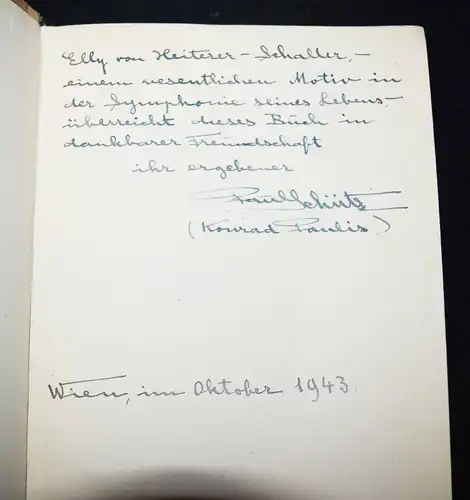 Elly von Heiterer-Schaller,-
einem wesentlichen Motiv in
der Symphonie seines Lebens,-
überreicht dieses Buch in
dankbarer Freundschaft
ihr ergebener
Paul Schütz
(Konrad Paulis)
Wien, im Oktober 1943